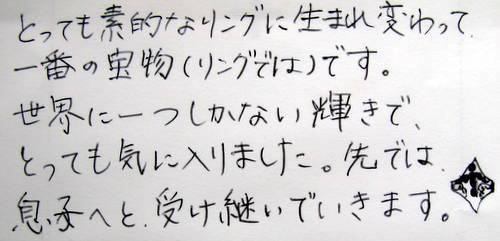 とっても素的なリングに生まれ変わって、
一番の宝物(リングでは)です。
世界に一つしかない輝きで、
とっても気に入りました。先では、
息子へと、受け継いでいきます。